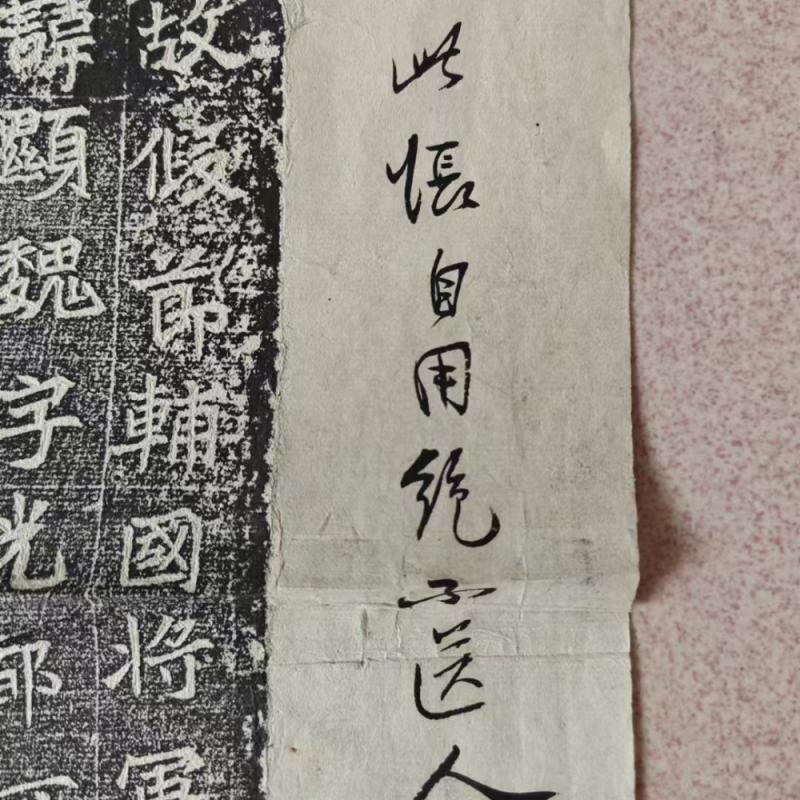 此帐自用绝不送人
故假節輔國将軍
諱顯魏字光郁